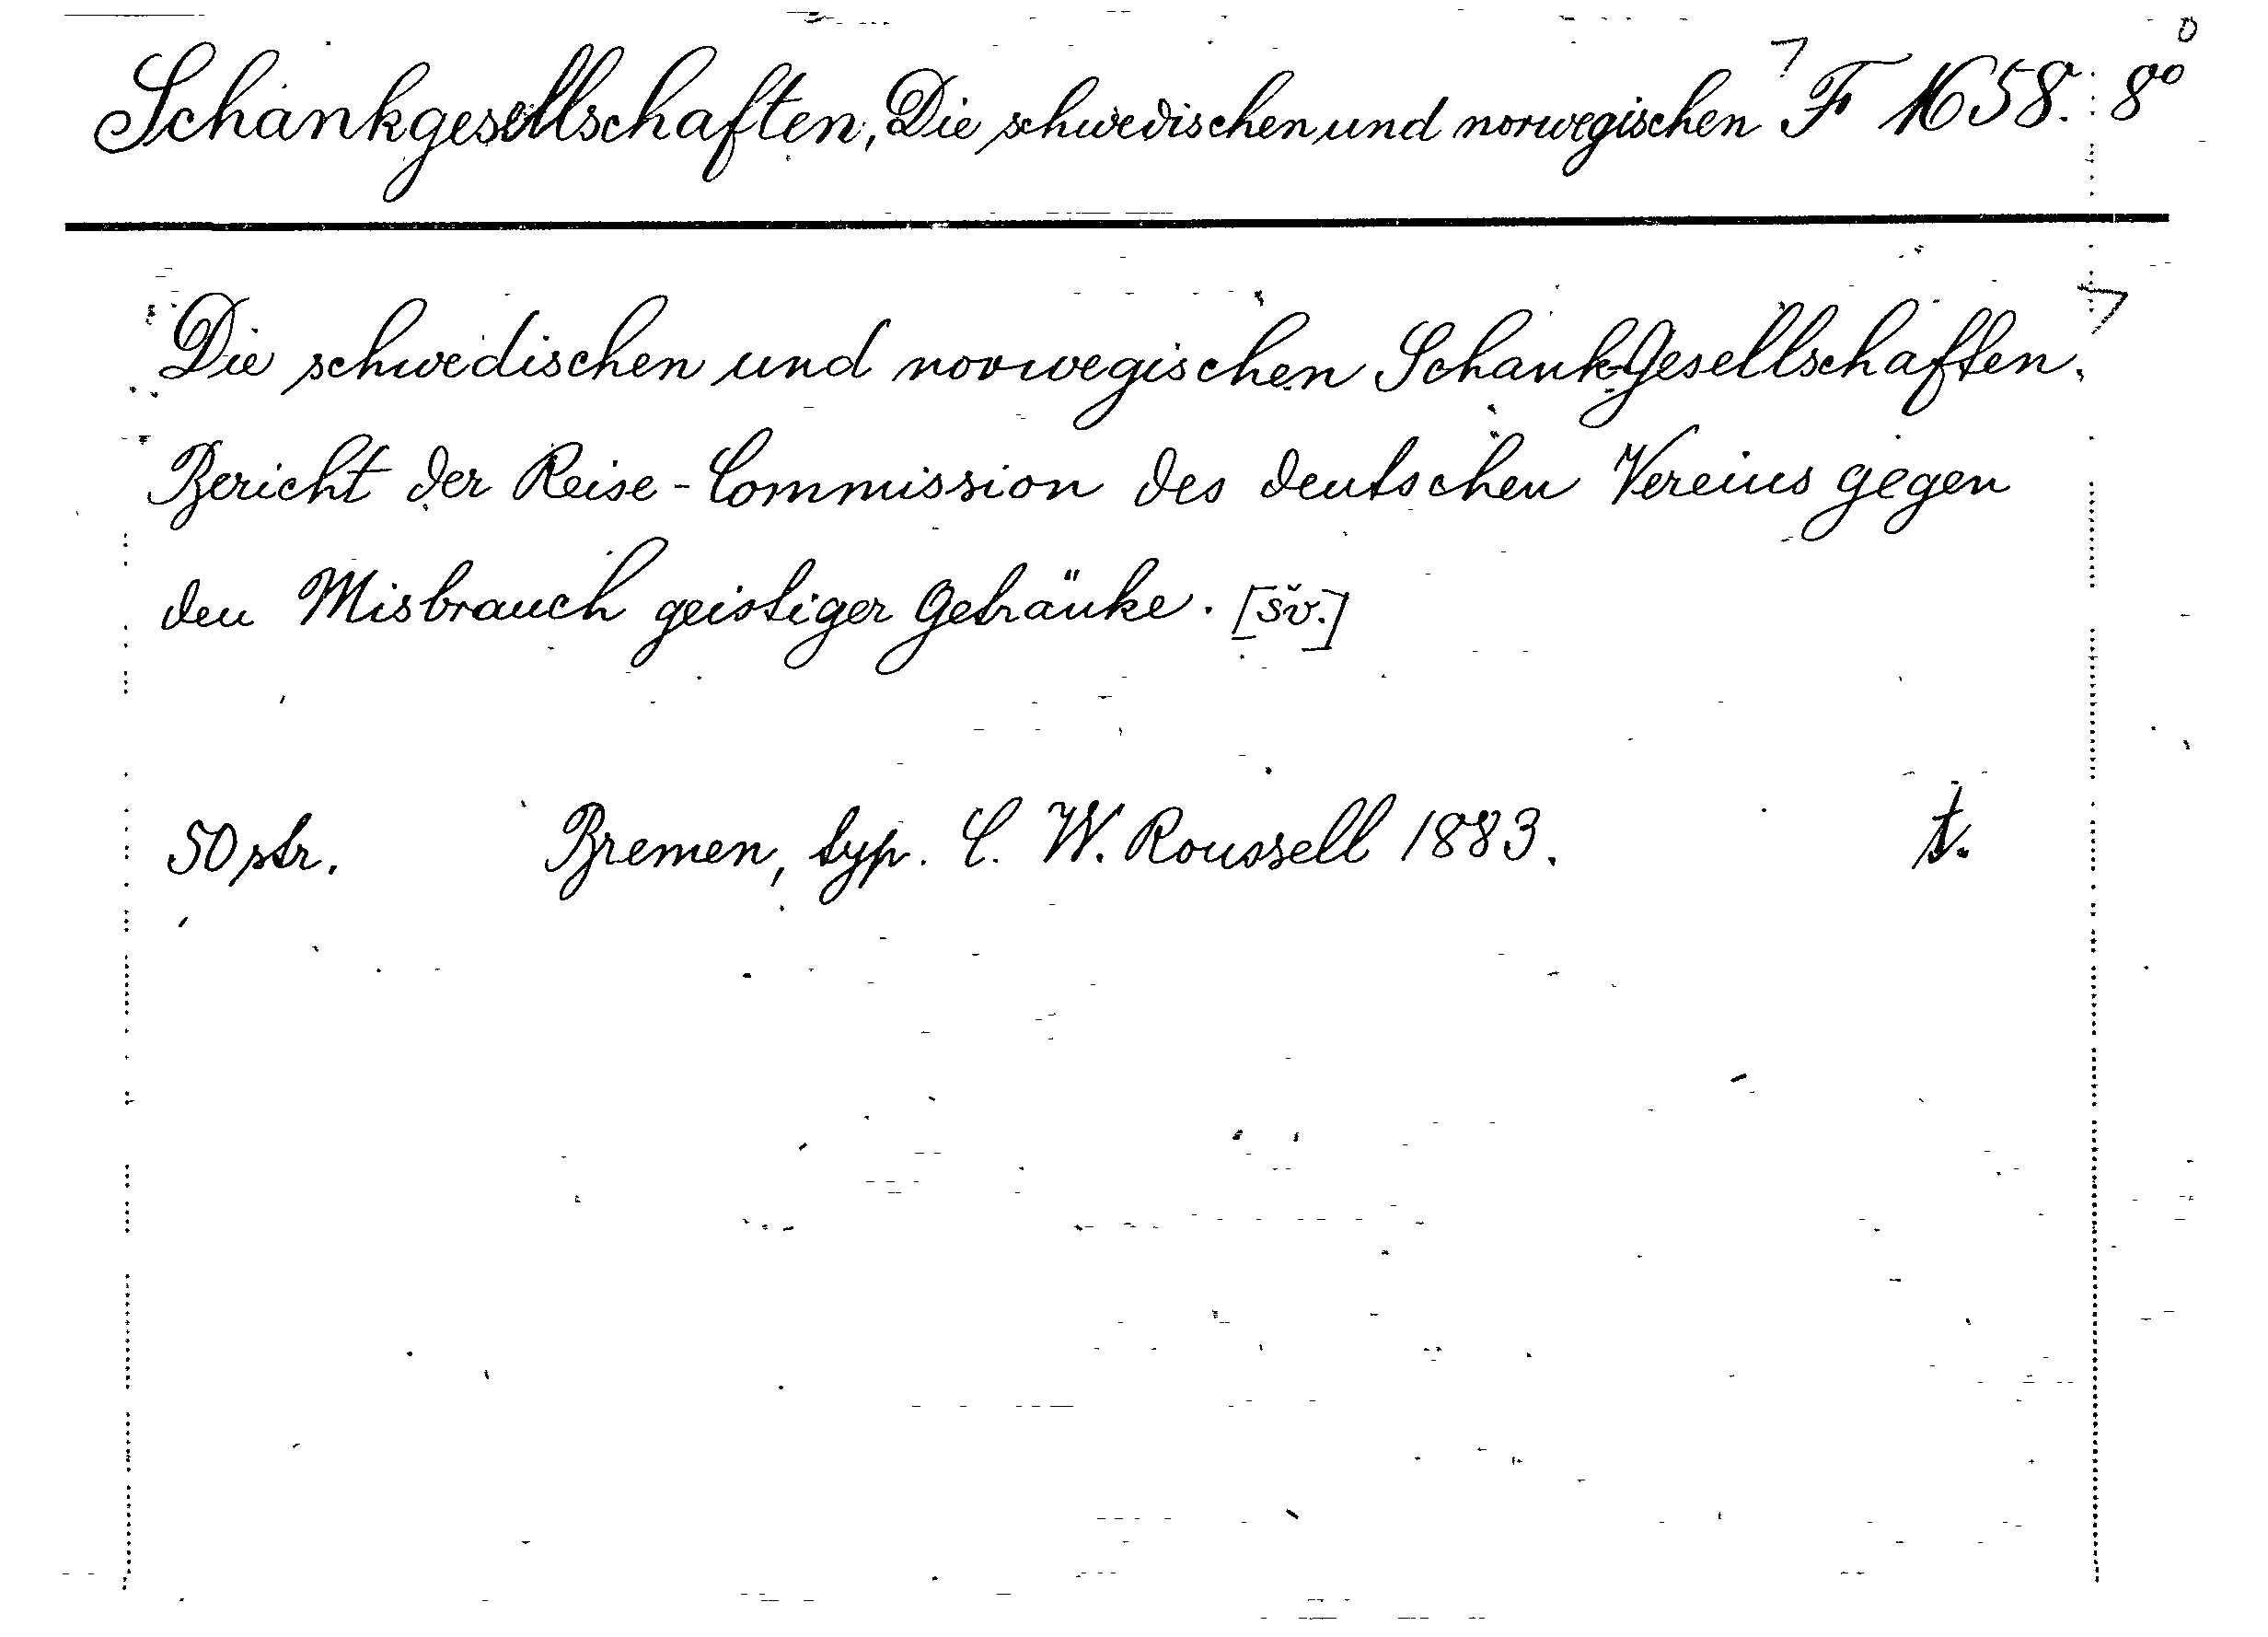 Schankgesellschaften, Die schwedischen und norwegischen F 1658. 8°
Die schwedischen und norwegischen Schank-Gesellschaften.
Bericht der Reise-Commission des deutschen Vereins gegen
den Misbrauch geistiger Getränke. [šv.]
50 str. Bremen, typ. C. W. Roussell 1883. t.